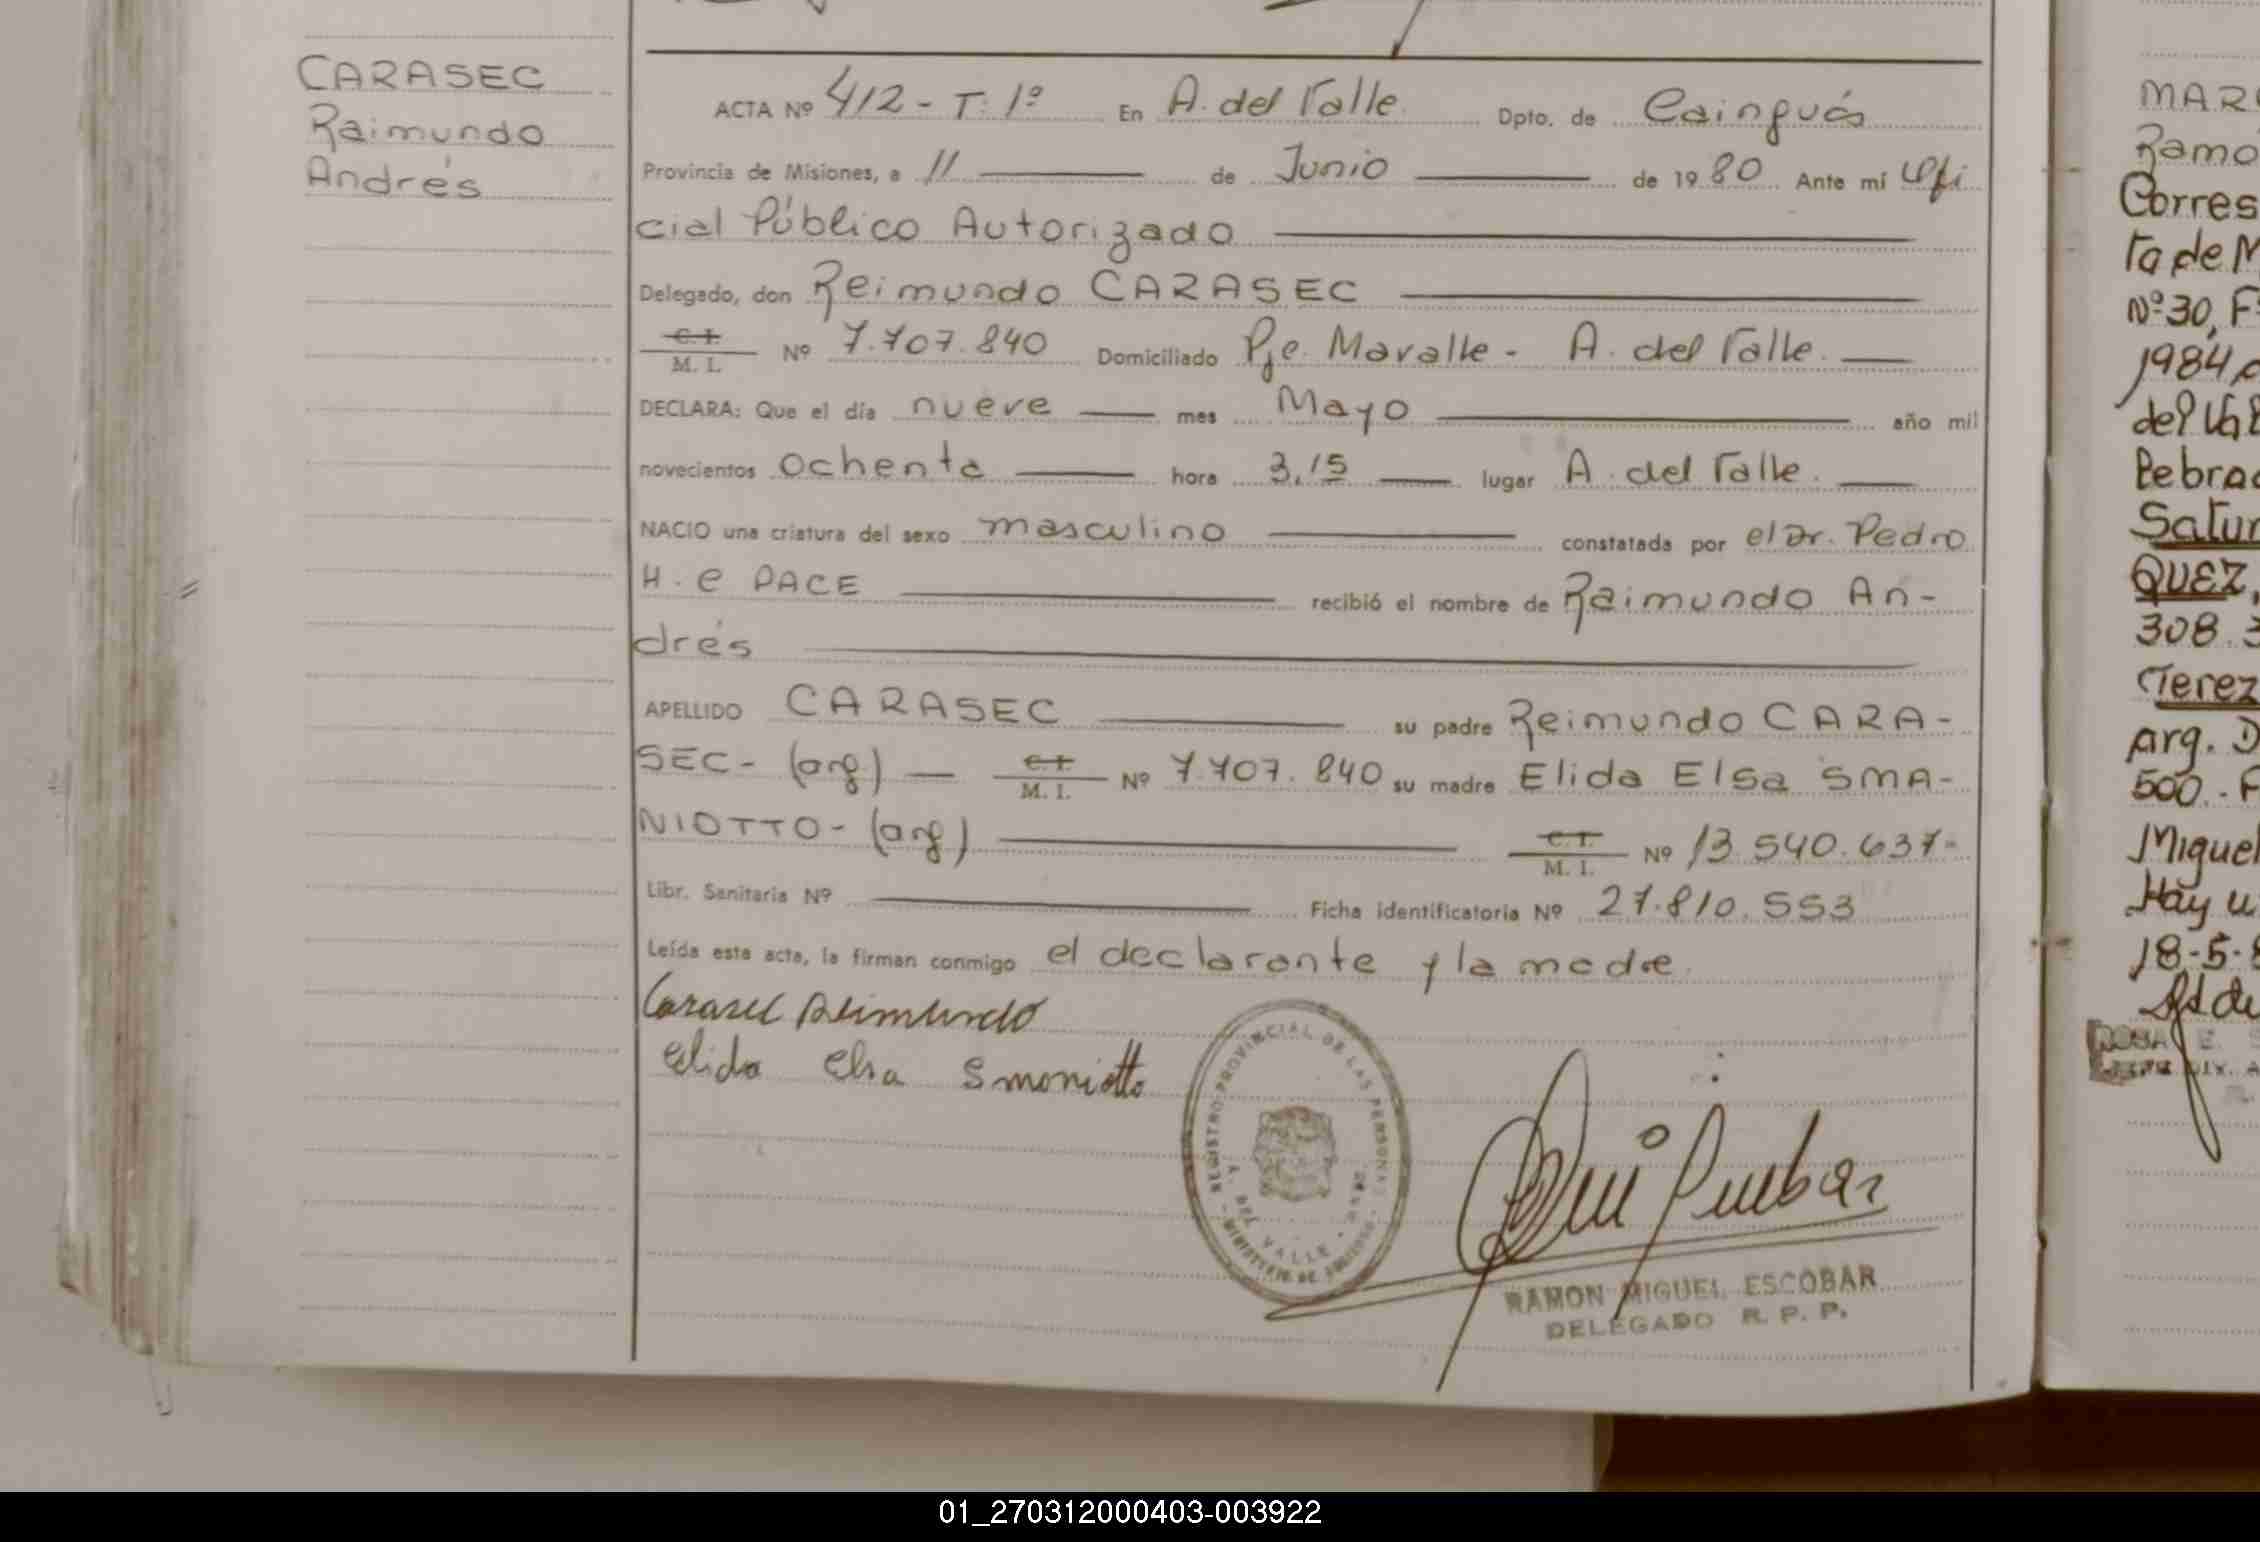 CARASEC
Raimundo
Andrés
ACTA Nº 412 - T: 1º En A. del Valle Dpto. de Cainguás
Provincia de Misiones, a 11 de Junio de 1980 Ante mí Ofi
cial Público Autorizado
Delegado, don Reimundo CARASEC
C. I.
M. I. Nº 7.707.840 Domiciliado Pje. Maralle - A. del Valle.
DECLARA: Que el día nueve mes Mayo año mil
novecientos ochenta hora 3,15 lugar A. del Valle.
NACIO una criatura del sexo masculino constatada por el Dr. Pedro
H. e PACE recibió el nombre de Raimundo An-
drés
APELLIDO CARASEC su padre Reimundo CARA-
SEC- (arg) C. I. M. I. Nº 7.707.840 su madre Elida Elsa SMA-
NIOTTO- (arg) C. I. M. I. Nº 13.540.637-
Libr. Sanitaria Nº Ficha identificatoria Nº 27.810.553
Leída esta acta, la firman conmigo el declarante y la madre
Carasec Reimundo
Elida Elsa Smoniotto
REGISTRO PROVINCIAL DE LAS PERSONAS
A. DEL VALLE
RAMON MIGUEL ESCOBAR
DELEGADO R. P. P.
MAR
Ramo
Corres
ta de M
Nº 30, F
1984
del Va
Pebra
Satur
QUEZ,
308.3
Terez
arg. D
500.- F
Miguel
Hay u
18-5-8
ROSA E.
01_270312000403-003922